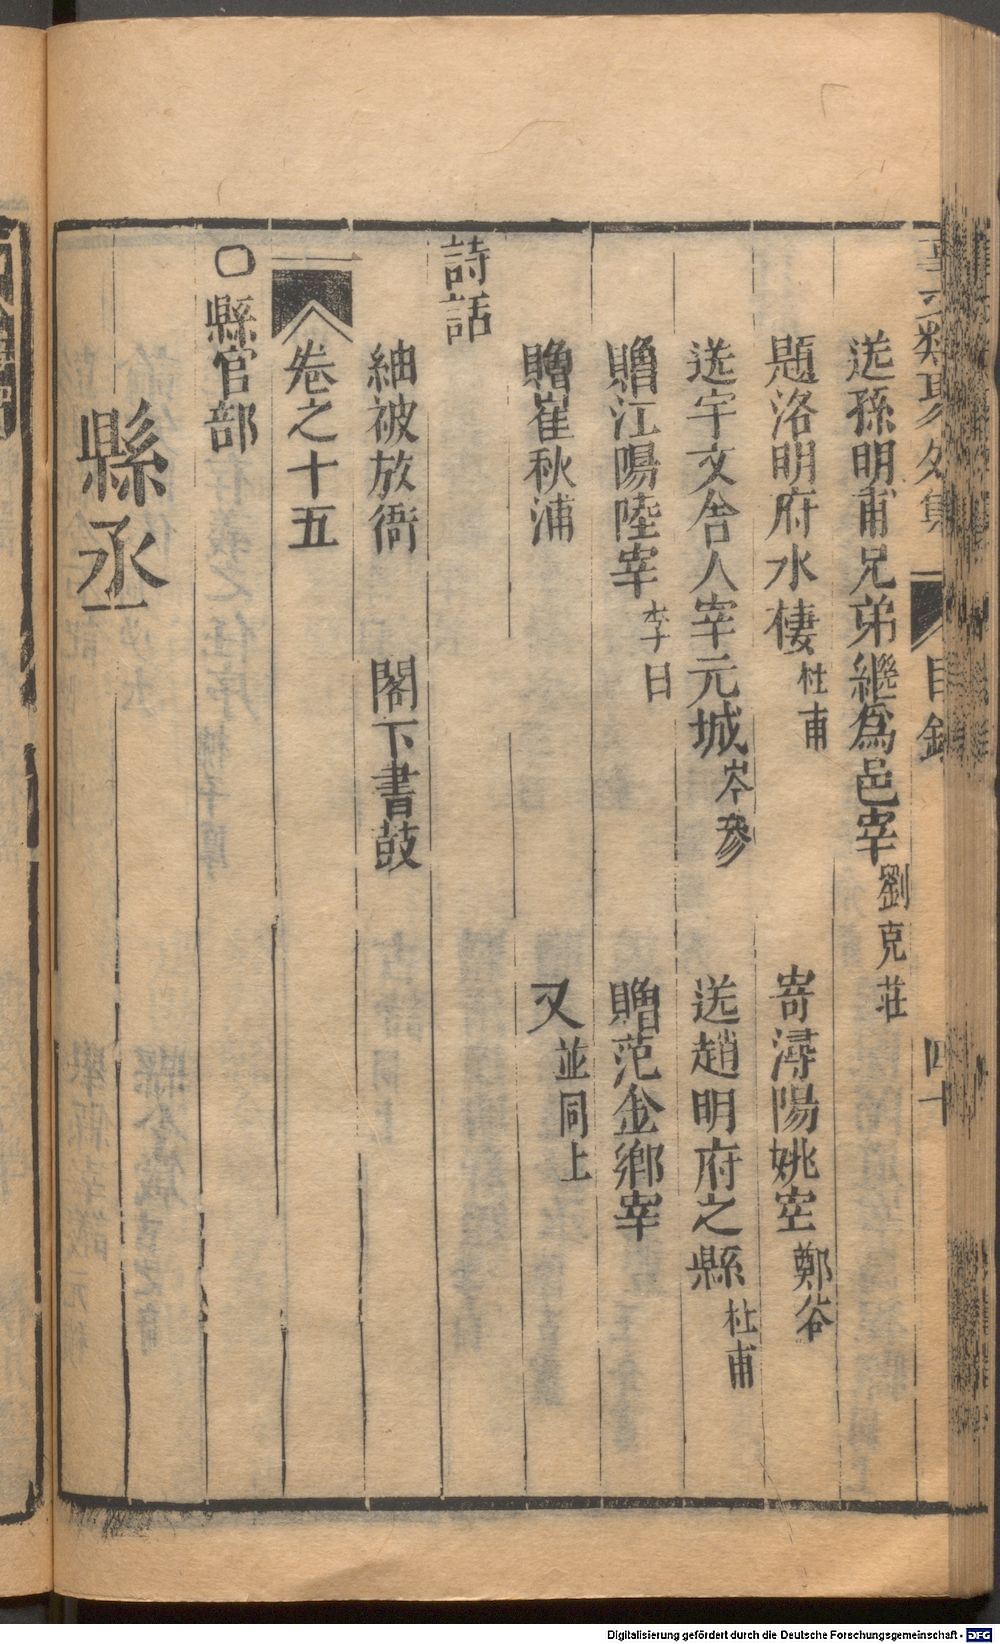 事文類聚外集 目錄 四十
送孫明甫兄弟繼爲邑宰 劉克莊
題洛明府水棲 杜甫 寄潯陽姚宰 鄭谷
送宇文舍人宰元城 岑參 送趙明府之縣 杜甫
贈江陽陸宰 李白 贈范金鄉宰
贈崔秋浦 又 並同上
詩話
紬被放衙 閣下書鼓
卷之十五
○縣官部
縣丞
Digitalisierung gefördert durch die Deutsche Forschungsgemeinschaft - DFG